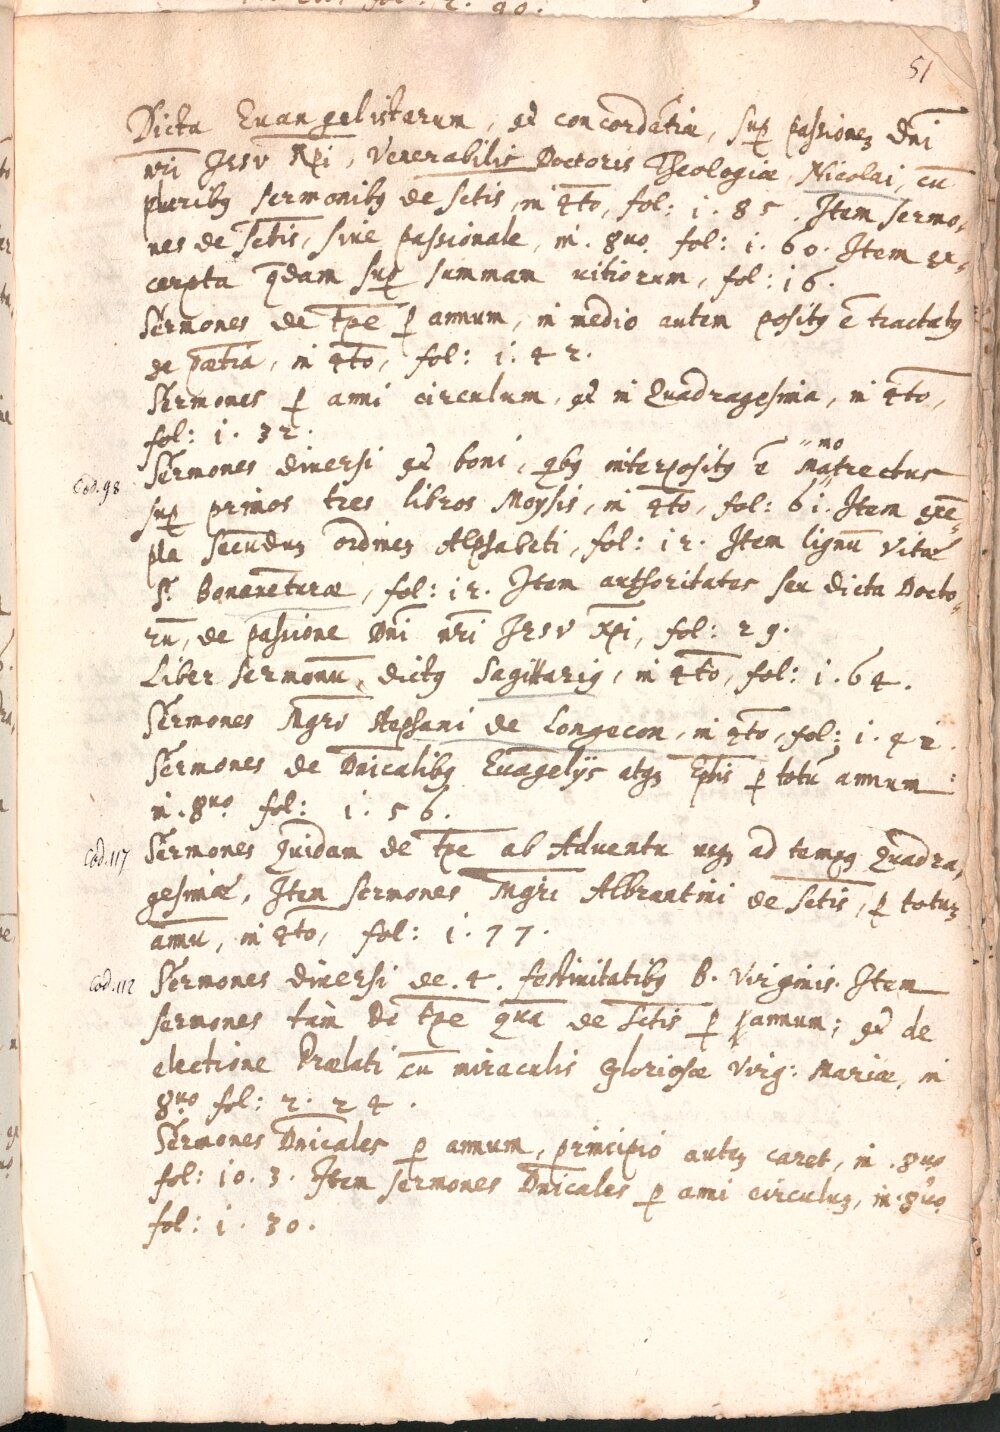 51
Dicta Euangelistarum, et concordãtiæ, sup passionez Dñi
nri Jesv Xpi, Venerabilis Doctoris Theologiæ Nicolai, cũ
pluribꝰ sermonibꝰ de Sctis, in 4to, fol: 1. 85. Item sermo,
nes de Sctis, siue passionale, in 8uo. fol: 1. 60. Item ex,
cerpta qdam sup summam uitiorum, fol: 16.
Sermones de Tpe p annum, in medio autem positꝰ ẽ tractatꝰ
de pœtia, in 4to, fol: 1. 42.
Sermones p anni circulum, et in Quadragesima, in 4to,
fol: 1. 32.
Cod. 98 Sermones diuersi et boni, qbꝰ interpositꝰ ẽ Matrectus
mo
sup primos tres libros Moysis, in 4to, fol: 61. Item exẽ,
pla secũduz ordinez Alphabeti, fol: 12. Item lignũ Vitæ
S. Bonauẽturæ, fol: 12. Item authoritates seu dicta Docto,
rũ, de passione Dñi nri Jesv Xpi, fol: 29.
Liber sermonũ, dictꝰ Sagittariꝰ, in 4to, fol: 1. 64.
Sermones Mgri Stephani de Longecon, in 4to, fol: 1. 42.
Sermones de Dnicalibꝰ Euãgelijs atqz Eplis p totũ annum
in 8uo fol: 1. 56.
Cod. 117 Sermones quidam de Tpe ab Aduentu usqz ad tempꝰ Quadra,
gesimæ, Item sermones Mgri Albrantini de Sctis, p totuz
annũ, in 4to, fol: 1. 77.
Cod. 112 Sermones diuersi de. 4. festiuitatibꝰ B. Virginis. Item
sermones tàm de Tpe quã de Sctis p annum; et de
electione Prælati cũ miraculis Gloriosæ Virg: Mariæ, in
8uo fol: 2. 24.
Sermones Dnicales p annum, principio autez caret, in 8uo
fol: 10. 3. Item sermones Dnicales p anni circuluz, in 8uo.
fol: 1. 30.